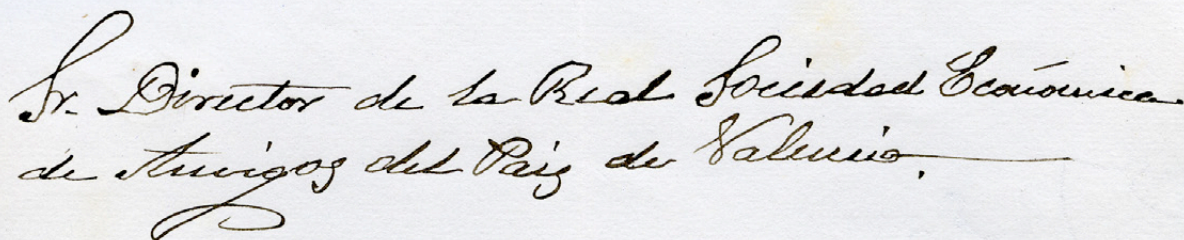 Sr. Director de la Real Sociedad Económica
de Amigos del Paiz de Valencia.